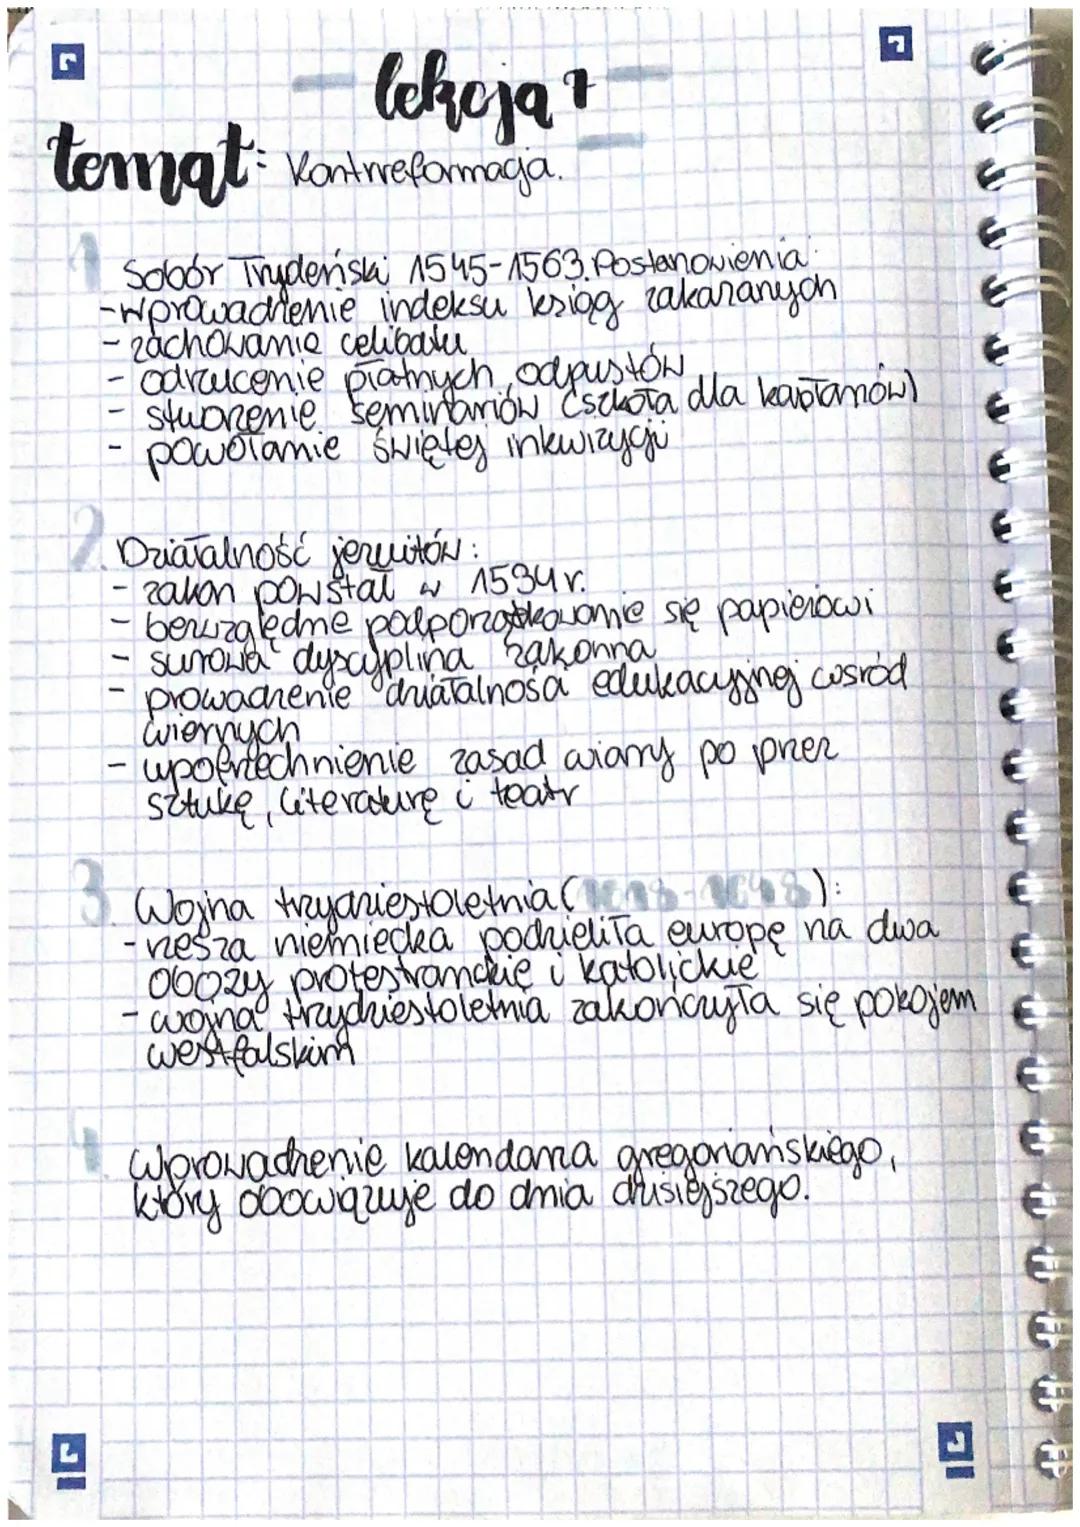 lekcja 1
temat: Kontrreformacja.
1. Sobór Trydeński 1545-1563. Postanowienia:
- wprowadzenie indeksu ksiąg zakazanych
- zachowanie celibatu
- odrzucenie płatnych odpustów
- stworzenie seminariów (szkoła dla kapłanów)
- powołanie świętej inkwizycji
2. Działalność jezuitów:
- zakon powstał w 1534 r.
- bezwzględne podporządkowanie się papieżowi
- surowa dyscyplina zakonna
- prowadzenie działalności edukacyjnej wśród
wiernych
- upowszechnienie zasad wiary po przez
sztukę, literaturę i teatr
3. Wojna trzydziestoletnia (1618-1648):
- rzesza niemiecka podzieliła europę na dwa
obozy protestranckie i katolickie
- wojna trzydziestoletnia zakończyła się pokojem
westfalskim
4. Wprowadzenie kalendarza gregoriańskiego,
który obowiązuje do dnia dzisiejszego.